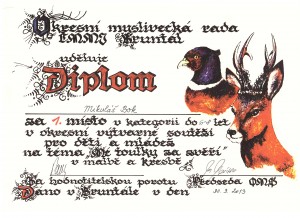 Okresní myslivecká rada
OMMJ Bruntál
uděluje
Diplom
Mikuláš Bok
za 1. místo v kategorii do 6-ti let
v okresní výtvarné soutěži
pro děti a mládež
na téma "Me toulky za zvěří"
v malbě a kresbě
Za hodnotitelskou porotu Předseda OMS
Dáno v Bruntále v den 31.3.2013